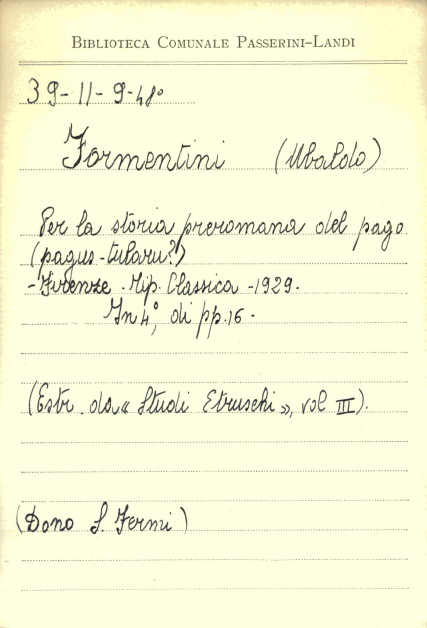 BIBLIOTECA COMUNALE PASSERINI-LANDI
39-11-9-48°
Formentini (Ubaldo)
Per la storia preromana del pago
(pagus-tularu?)
- Firenze. Tip. Classica - 1929.
In 4°, di pp. 16.
(Estr. da « Studi Etruschi », vol III).
(Dono S. Fermi)